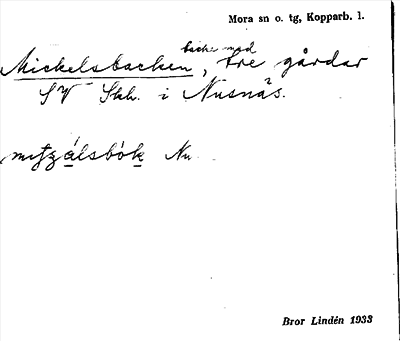 Mora sn o. tg, Kopparb. l.
backe med
Mickelsbacken, tre gårdar
SV Skh. i Nusnäs.
mitzálsbók Nu.
Bror Lindén 1933